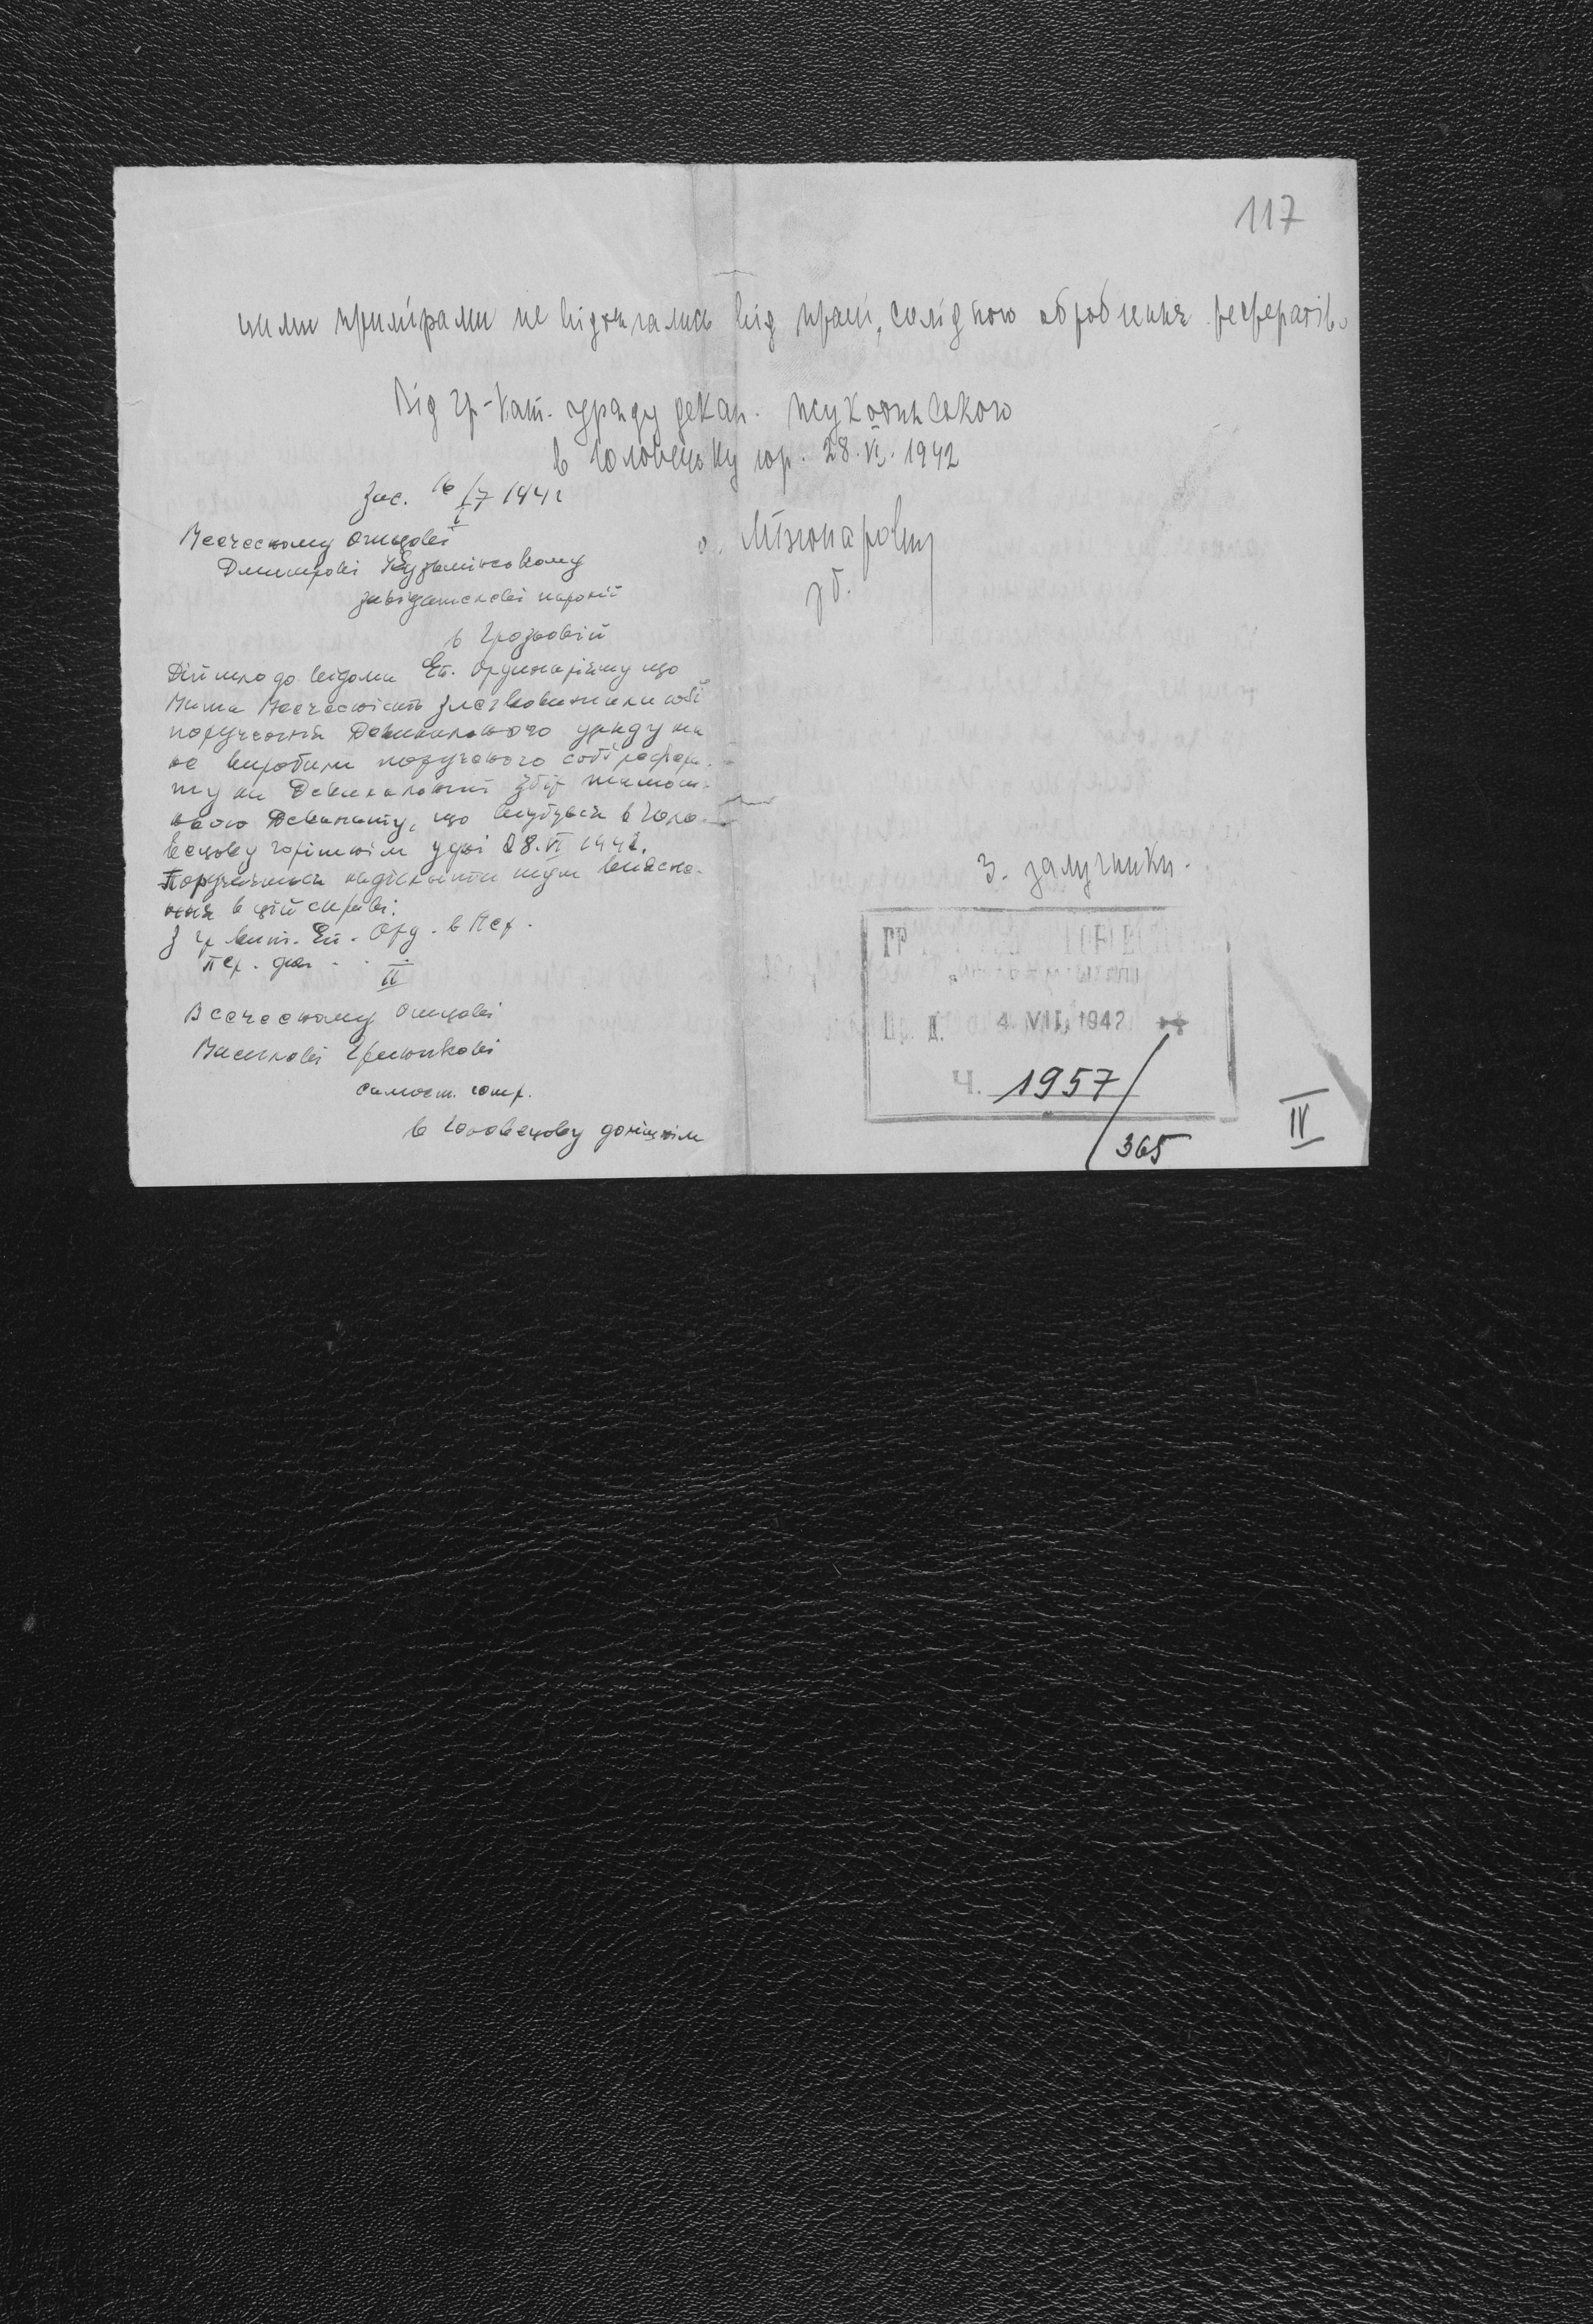 117
цими примірами не відтягались від праці, солідного оброблення рефератів.
Від гр-кат. уряду декан. жукотинського
в Головецьку гор. 28.VI.1942
о.
зб.
Зас. 16/7 1942
I
Всечесному Отцеві
Дмитрові Кузьмінському
завідателеві парохії
в Грозьовій
Дійшло до відома Еп. Ординаріяту що
Ваша Всечесність злегковажили собі
поручення Деканального уряду та
не виробили порученого собі рефера-
ту на Деканальний збір тамош-
нього Деканату, що відбувся в Голо-
вецьку горішнім у дні 28.VI 1942.
Поручається надіслати тут вияснен-
ня в цій справі.
З гр. кат. Еп. Орд. в Пер.
Пер. дня . .
II
Всечесному Отцеві
Василеві
самост. сотр.
в Головецьку долішнім
3. залучники.
ГР
Пр. д. 4. VII. 1942
Ч. 1957/
365
IV